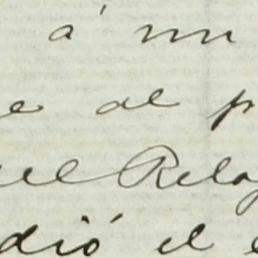 á mi
e al p
el Relo
dió el e